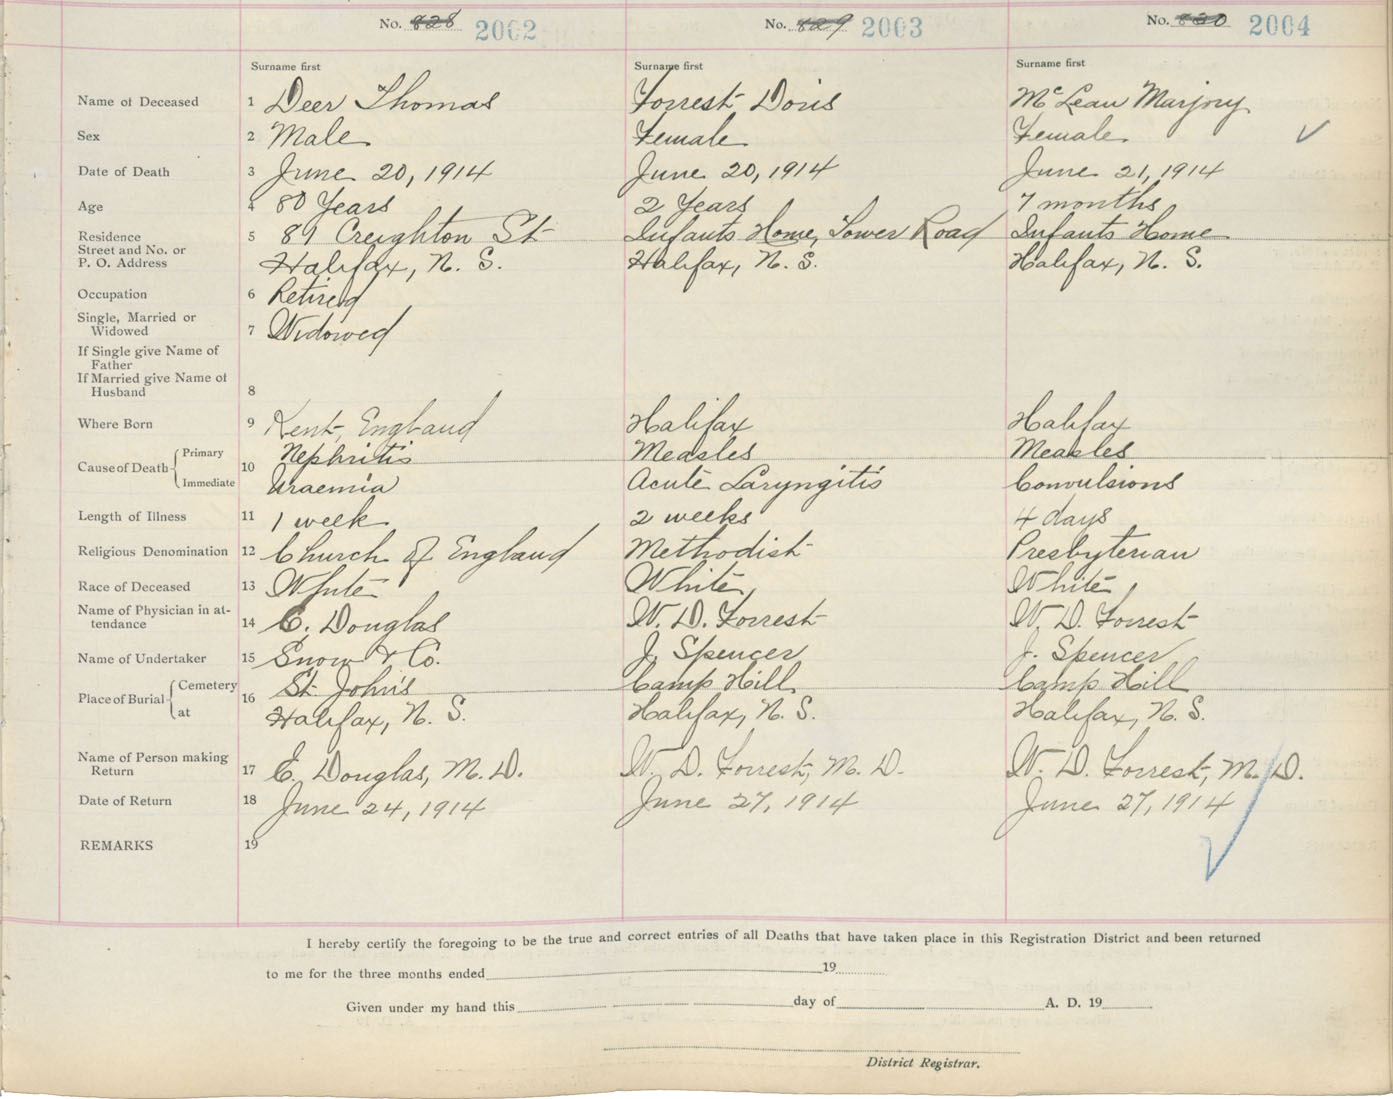 No. 828 2002 No. 829 2003 No. 830 2004
Surname first Surname first Surname first
Name of Deceased 1 Deer Thomas Forrest Doris McLean Marjory
Sex 2 Male Female Female
Date of Death 3 June 20, 1914 June 20, 1914 June 21, 1914
Age 4 80 Years 2 Years 7 months
Residence 5 81 Creighton St Infants Home, Tower Road Infants Home
Street and No. or
P. O. Address Halifax, N. S. Halifax, N. S. Halifax, N. S.
Occupation 6 Retired
Single, Married or
Widowed 7 Widowed
If Single give Name of
Father
If Married give Name of
Husband 8
Where Born 9 Kent, England Halifax Halifax
Cause of Death Primary 10 Nephritis Measles Measles
Immediate Uraemia Acute Laryngitis Convulsions
Length of Illness 11 1 week 2 weeks 4 days
Religious Denomination 12 Church of England Methodist Presbyterian
Race of Deceased 13 White White White
Name of Physician in at-
tendance 14 E. Douglas W. D. Forrest W. D. Forrest
Name of Undertaker 15 Snow & Co. J. Spencer J. Spencer
Place of Burial Cemetery 16 St John's Camp Hill Camp Hill
at Halifax, N. S. Halifax, N. S. Halifax, N. S.
Name of Person making
Return 17 E. Douglas, M. D. W. D. Forrest, M. D. W. D. Forrest, M. D.
Date of Return 18 June 24, 1914 June 27, 1914 June 27, 1914
REMARKS 19
I hereby certify the foregoing to be the true and correct entries of all Deaths that have taken place in this Registration District and been returned
to me for the three months ended 19
Given under my hand this day of A. D. 19
District Registrar.